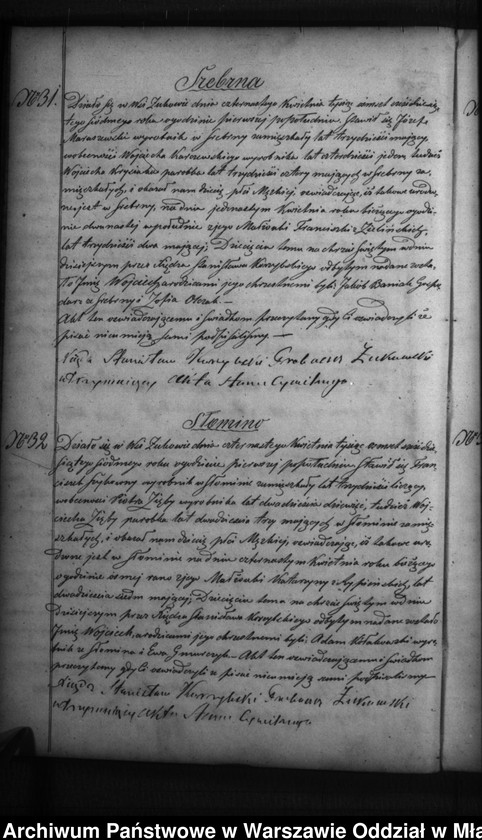 Srebrna
No 31. Działo się w Wsi Żukowie dnia czternastego Kwietnia tysiąc ośmset
siódmego roku o godzinie pierwszej po południu Stawił się Józef
wyrobnik w Srebrny zamieszkały lat trzydzieści mający
w obecności Wojciecha Karczewskiego wyrobnika lat czterdzieści jeden tudzież
Wojciecha parobka lat trzydzieści cztery mających w Srebrny za-
mięszkałych, i okazał nam dziecię płci Męzkiej oświadczając, iż takowe urodzo-
ne jest w Srebrny, na dniu jedenastym Kwietnia roku bieżącego o godzi-
nie dwunastej w południe z jego Małżonki Franciszki z Zielińskich,
lat trzydzieści dwa mającej; Dziecięciu temu na chrzcie świętym w dniu
dzisiejszym przez Księdza Stanisława Korzybskiego odbytym nadane zosta-
ło Imię Wojciech, a rodzicami jego chrzestnemi byli Jakób Baniak Gospo-
darz ze Srebrny i Zofia Olszak. —
Akt ten oświadczającemu i świadkom przeczytany gdy ci oświadczyli że
pisać nieumieją sami podpisaliśmy. —
Xiądz Stanisław Korzybski Proboszcz Żukowski
utrzymujący Akta Stanu Cywilnego.
Słomino
No 32 Działo się w Wsi Żukowie dnia czternastego Kwietnia tysiąc ośmset
siódmego roku o godzinie pierwszej po południu Stawił się Fran-
ciszek wyrobnik w Słominie zamięszkały lat trzydzieści liczący,
w obecności Piotra Zięby wyrobnika lat dwadzieścia dziewięć, tudzież Woj-
ciecha Zięby parobka lat dwadzieścia trzy mających w Słominie zamię-
szkałych, i okazał nam dziecię płci Męzkiej, oświadczając, iż takowe uro-
dzone jest w Słominie na dniu czternastym Kwietnia roku bieżącego
o godzinie ósmej rano z jego Małżonki Katarzyny z lat
dwadzieścia siedm mającej; Dziecięciu temu na chrzcie świętym w dniu
dzisiejszym przez Księdza Stanisława Korzybskiego odbytym nadane zostało
Imię Wojciech, a rodzicami jego chrzestnemi byli Adam Kołakowski wyro-
bnik z Słomina i Ewa Akt ten oświadczającemu i świadkom
przeczytany gdy ci oświadczyli że pisać nieumieją sami podpisaliśmy
Xiądz Stanisław Korzybski Proboszcz Żukowski
utrzymujący Akta Stanu Cywilnego.
Archiwum Państwowe w Warszawie Oddział w Mła